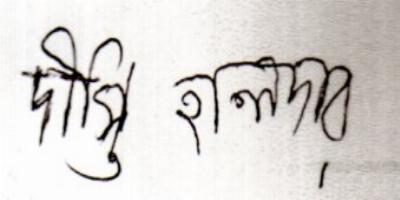 দীপ্তি হালদার